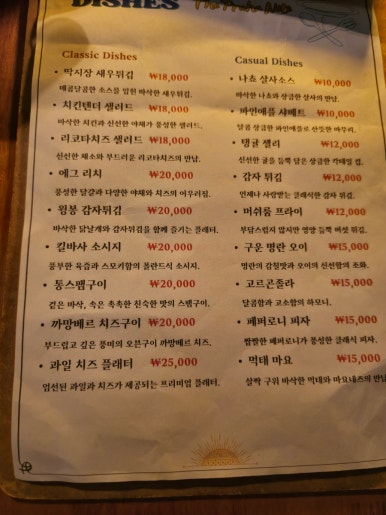 DISHES
Classic Dishes
• 딱지장 새우튀김 ₩18,000
매콤달콤한 소스를 입힌 바삭한 새우튀김.
• 치킨텐더 샐러드 ₩18,000
바삭한 치킨과 신선한 야채가 풍성한 샐러드.
• 리코타치즈 샐러드 ₩18,000
신선한 채소와 부드러운 리코타치즈의 만남.
• 에그 리치 ₩20,000
풍성한 달걀과 다양한 야채와 치즈의 어우러짐.
• 윙봉 감자튀김 ₩20,000
바삭한 닭날개와 감자튀김을 함께 즐기는 플래터.
• 킬바사 소시지 ₩20,000
풍부한 육즙과 스모키함의 폴란드식 소시지.
• 통스팸구이 ₩20,000
겉은 바삭, 속은 촉촉한 친숙한 맛의 스팸구이.
• 까망베르 치즈구이 ₩20,000
부드럽고 깊은 풍미의 오븐구이 까망베르 치즈.
• 과일 치즈 플래터 ₩25,000
엄선된 과일과 치즈가 제공되는 프리미엄 플래터.
Casual Dishes
• 나쵸 살사소스 ₩10,000
바삭한 나쵸와 상큼한 살사의 만남.
• 파인애플 샤베트 ₩10,000
달콤 상큼한 파인애플로 산뜻한 마무리.
• 탱귤 젤리 ₩12,000
신선한 귤을 듬뿍 담은 상큼한 칵테일 컵.
• 감자 튀김 ₩12,000
언제나 사랑받는 클래식한 감자 튀김.
• 머쉬룸 프라이 ₩12,000
부담스럽지 않지만 영양 듬뿍 버섯 튀김.
• 구운 명란 오이 ₩15,000
명란의 감칠맛과 오이의 신선함의 조화.
• 고르곤졸라 ₩15,000
달콤함과 고소함의 하모니.
• 페퍼로니 피자 ₩15,000
짭짤한 페퍼로니가 풍성한 클래식 피자.
• 먹태 마요 ₩15,000
살짝 구워 바삭한 먹태와 마요네즈의 만남